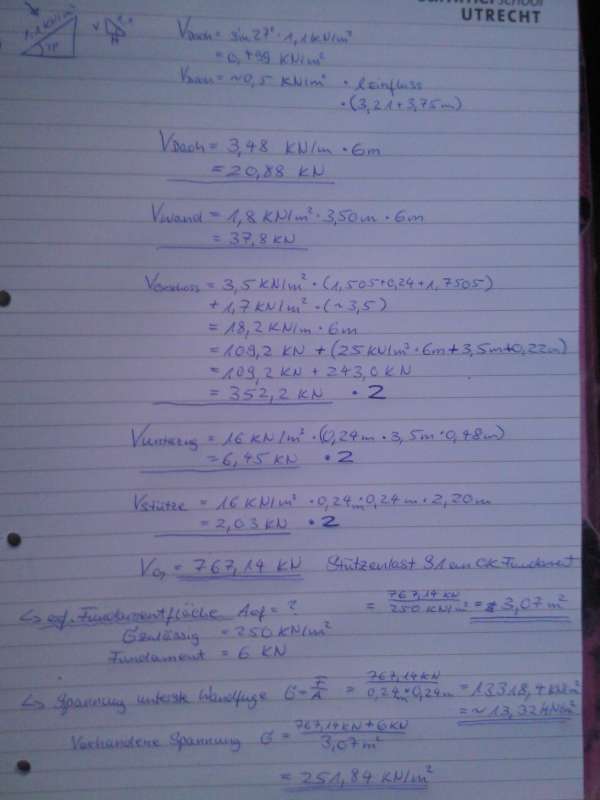 summerschool
UTRECHT
1,1 kN/m²
VDach = sin 27° · 1,1 kN/m²
= 0,499 kN/m²
VDach = ~0,5 kN/m² · leinfluss
· (3,21+3,75m)
VDach = 3,48 KN/m · 6m
= 20,88 KN
VWand = 1,8 KN/m² · 3,50m · 6m
= 37,8 KN
= 3,5 KN/m² · (1,505+0,24+1,7505)
+ 1,7 KN/m² · (~3,5)
= 18,2 KN/m · 6m
= 109,2 KN + (25 KN/m² · 6m + 3,5m + 0,22m)
= 109,2 KN + 243,0 KN
= 352,2 KN · 2
VUnterzug = 16 KN/m² · (0,24m · 3,5m · 0,48m)
= 6,45 KN · 2
VStütze = 16 KN/m² · 0,24m · 0,24m · 2,20m
= 2,03 KN · 2
= 767,14 KN Stützenlast S1 an OK Fundament
↳ erf. Fundamentfläche Aerf = ? = 767,14 KN / 250 KN/m² = 3,07 m²
σzulässig = 250 KN/m²
Fundament = 6 KN
↳ Spannung unterste Wandfuge σ = F/A = 767,14 KN / 0,24m · 0,24m = 13318,4 KN/m²
= ~13,32
Vorhandene Spannung σ = 767,14 KN + 6KN / 3,07 m²
= 251,84 KN/m²